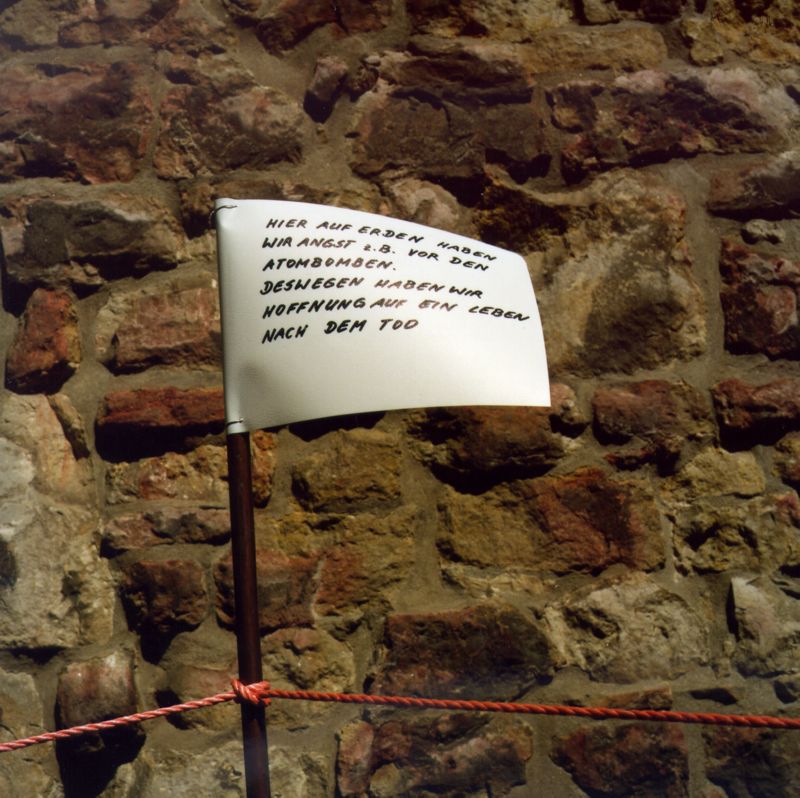 HIER AUF ERDEN HABEN
WIR ANGST z.B. VOR DEN
ATOMBOMBEN.
DESWEGEN HABEN WIR
HOFFNUNG AUF EIN LEBEN
NACH DEM TOD